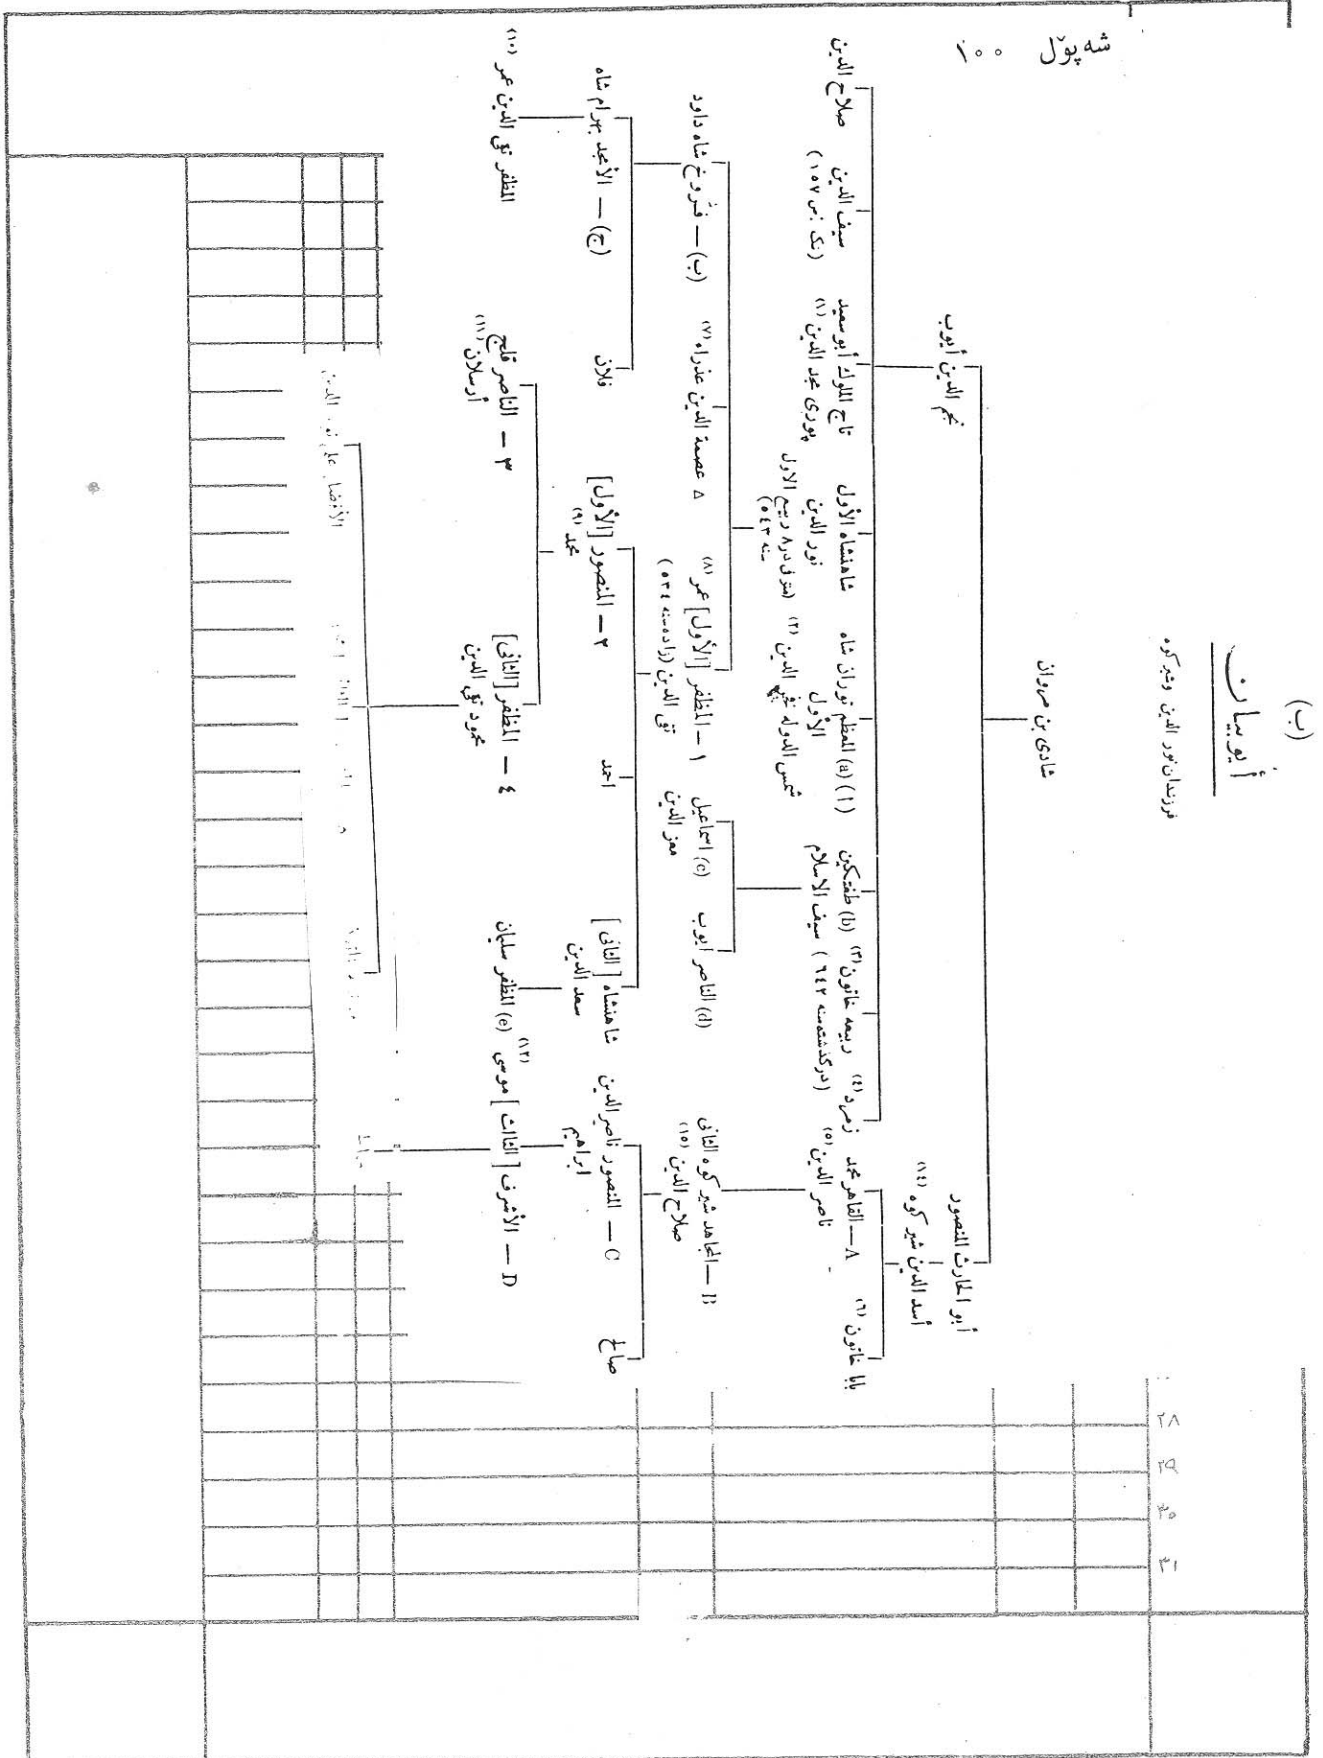 شەپۆل ١٠٠
(ب)
أيوبيان
فرزندان نور الدين وشيركوه
شادى بن مروان
نجم الدين أيوب
أبو الحارث المنصور
أسد الدين شيركوه (١٤)
صلاح الدين
سيف الدين
(نک : ص ١٥٧)
تاج الملوك أبو سعيد
بورى مجد الدين (١)
شاهنشاه الأول
نور الدين
(متوفى در ٨ ربيع الاول
سنه ٥٤٣)
(١) (a) المعظم توران شاه
الأول
شمس الدوله فخر الدين (٢)
(b) طغتكين
سيف الاسلام (٣)
ربيعه خاتون (٤)
(درگذشته سنه ٦٤٢)
زمرد (٥)
A — القاهر محمد
ناصر الدين
بابا خاتون (٦)
(ب) — فروخ شاه داود
△ عصمة الدين عذراء (٧)
١ — المظفر [الأول] عمر (٨)
تقى الدين (زاده سنه ٥٣٤)
(c) اسماعيل
معز الدين
(d) الناصر ايوب
B — المجاهد شيركوه الثانى
صلاح الدين (١٥)
(ج) — الأمجد بهرام شاه
فلان
٢ — المنصور [الأول]
محمد (٩)
احمد
شاهنشاه [الثانى]
سعد الدين
C — المنصور ناصر الدين
ابراهيم
صالح
المظفر تقى الدين عمر (١٠)
٣ — الناصر قلج
أرسلان (١١)
٤ — المظفر [الثانى]
محمود تقى الدين
(e) المظفر سليمان (١٢)
D — الأشرف [الثالث] موسى
٢٨
٢٩
٣٠
٣١